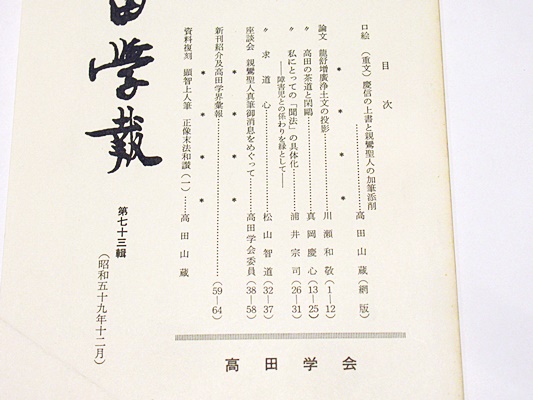 目次
口絵 (重文) 慶信の上書と親鸞聖人の加筆添削……高田山蔵(網版)
* * * *
論文 龍舒増廣浄土文の投影……川瀬和敬(1—12)
〃 高田の茶道と閑鷗……真岡慶心(13—25)
〃 私にとっての「聞法」の具体化……浦井宗司(26—31)
——障害児との係わりを縁として——
〃 求道心……松山智道(32—37)
座談会 親鸞聖人真筆御消息をめぐって……高田学会委員(38—58)
* * * *
新刊紹介及高田学界彙報……(59—64)
* * * *
資料復刻 顕智上人筆 正像末法和讃(一)……高田山蔵
高田学会
田学報
第七十三輯
(昭和五十九年十二月)